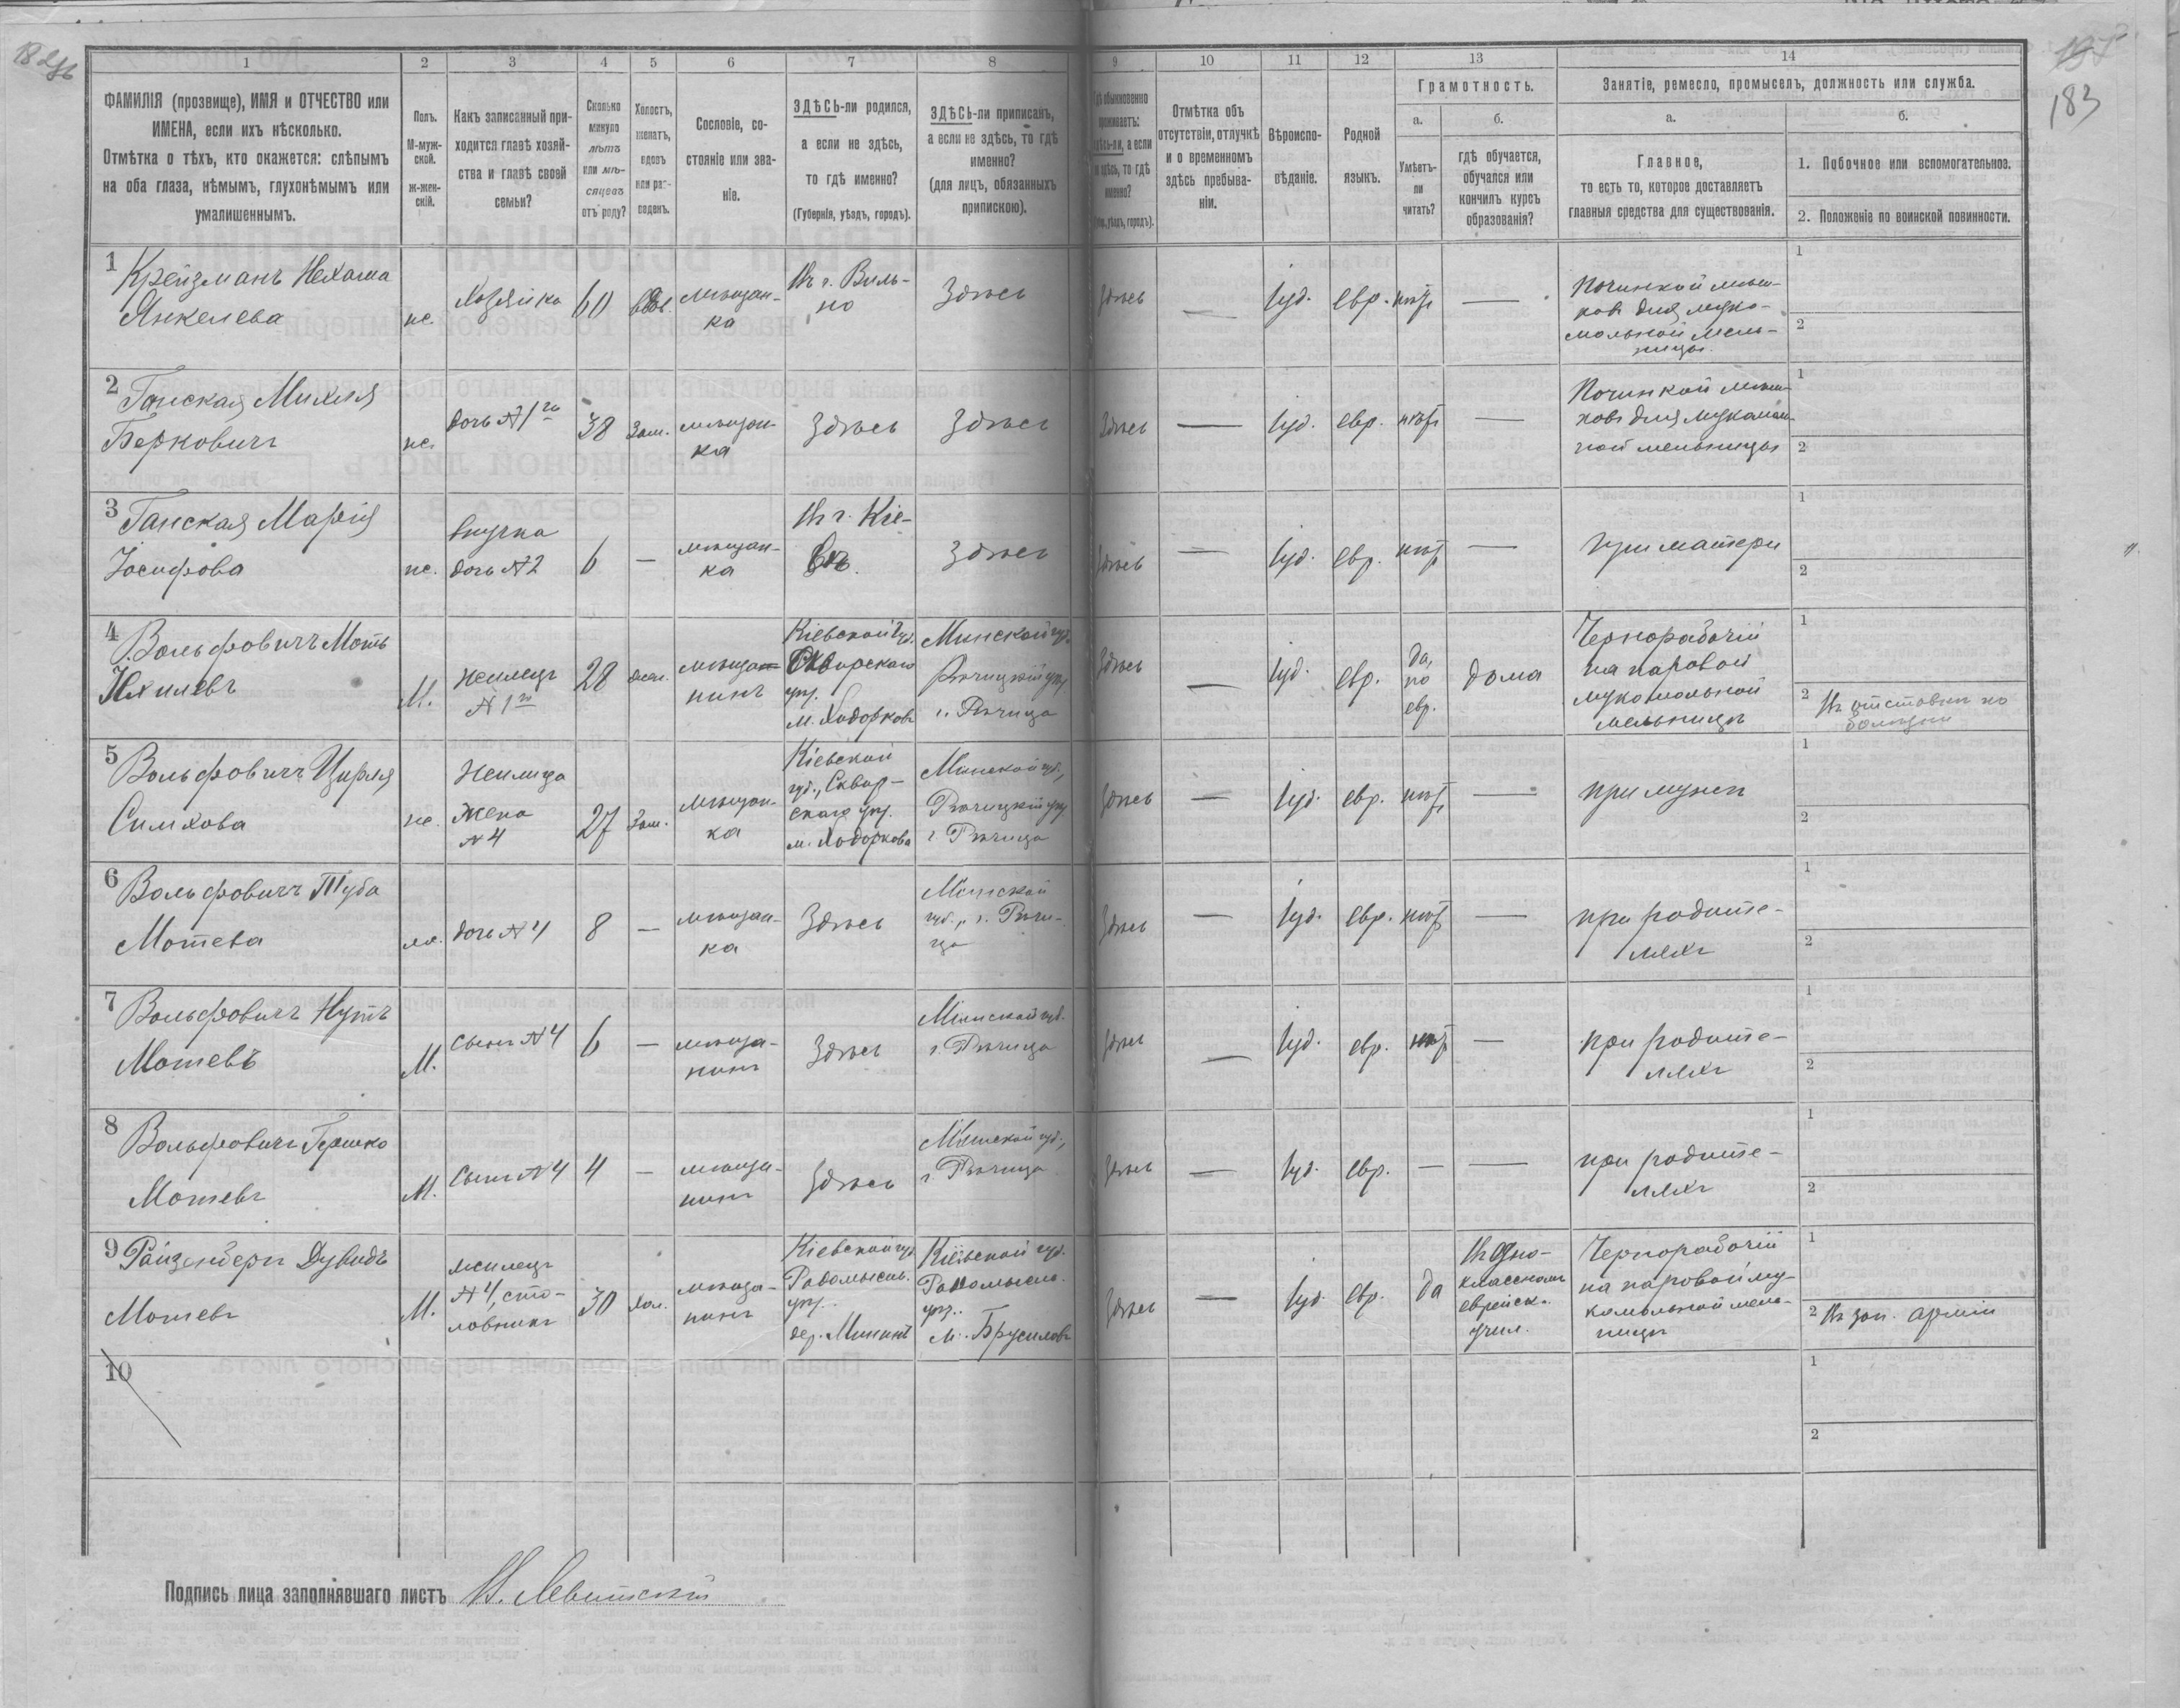 183
1 2 3 4 5 6 7 8 9 10 11 12 13 14
ФАМИЛІЯ (прозвище), ИМЯ и ОТЧЕСТВО или
ИМЕНА, если ихъ нѣсколько.
Отмѣтка о тѣхъ, кто окажется: слѣпымъ
на оба глаза, нѣмымъ, глухонѣмымъ или
умалишеннымъ.
Полъ.
М-муж-
ской.
ж-жен-
скій.
Какъ записанный при-
ходится главѣ хозяй-
ства и главѣ своей
семьи?
Сколько
минуло
лѣтъ
или мѣ-
сяцевъ
отъ роду?
Холостъ,
женатъ,
вдовъ
или раз-
веденъ.
Сословіе, со-
стояніе или зва-
ніе.
ЗДѢСЬ-ли родился,
а если не здѣсь,
то гдѣ именно?
(Губернія, уѣздъ, городъ).
ЗДѢСЬ-ли приписанъ,
а если не здѣсь, то гдѣ
именно?
(для лицъ, обязанныхъ
припискою).
Гдѣ обыкновенно
проживаетъ:
здѣсь-ли, а если
не здѣсь, то гдѣ
именно?
Отмѣтка объ
отсутствіи, отлучкѣ
и о временномъ
здѣсь пребыва-
ніи.
Вѣроиспо-
вѣданіе.
Родной
языкъ.
Грамотность.
а.
Умѣетъ-
ли
читать?
б.
гдѣ обучается,
обучался или
кончилъ курсъ
образованія?
Занятіе, ремесло, промыселъ, должность или служба.
а.
Главное,
то есть то, которое доставляетъ
главныя средства для существованія.
б.
1. Побочное или вспомогательное.
2. Положеніе по воинской повинности.
1
Крейзманъ Нехама
Янкелева
ж.
Хозяйка
60
вдов.
мѣщан-
ка
Въ г. Виль-
но
Здѣсь
Здѣсь
—
Іуд.
евр.
нѣтъ
—
Починкой мѣш-
ковъ для муко-
мольной мель-
ницы.
1
2
2
Ганская Михля
Берковичъ
ж.
дочь №1го
38
Зам.
мѣщан-
ка
Здѣсь
Здѣсь
Здѣсь
—
Іуд.
евр.
нѣтъ
—
Починкой мѣш-
ковъ для мукомоль-
ной мельницы
1
2
3
Ганская Марія
Іосифова
ж.
внучка
дочь №2
6
—
мѣщан-
ка
Въ г. Кіе-
вѣ.
Здѣсь
Здѣсь
—
Іуд.
евр.
нѣтъ
—
при матери
1
2
4
Вольфовичъ Моть
М.
жилецъ
№1го
28
жен.
мѣща-
нинъ
Кіевской губ.
Сквирскаго
уѣз.
м. Ходорковъ
Минской губ.
Рѣчицкій уѣз.
г. Рѣчица
Здѣсь
—
Іуд.
евр.
да,
по
евр.
дома
Чернорабочій
на паровой
мукомольной
мельницѣ
1
2 Въ отставкѣ по
болѣзни
5
Вольфовичъ Цирля
Симхова
ж.
Жилица
жена
№4
27
Зам.
мѣщан-
ка
Кіевской
губ., Сквир-
скаго уѣз.
м. Ходоркова
Минской губ.,
Рѣчицкій уѣз.
г. Рѣчица
Здѣсь
—
Іуд.
евр.
нѣтъ
—
при мужѣ
1
2
6
Вольфовичъ Туба
Мотева
ж.
дочь №4
8
—
мѣщан-
ка
Здѣсь
Минской
губ., г. Рѣчи-
ца
Здѣсь
—
Іуд.
евр.
нѣтъ
—
при родите-
ляхъ
1
2
7
Вольфовичъ Нутъ
Мотевъ
М.
сынъ №4
6
—
мѣща-
нинъ
Здѣсь
Минской губ.
г. Рѣчица
Здѣсь
—
Іуд.
евр.
нѣтъ
—
при родите-
ляхъ
1
2
8
Вольфовичъ Гершко
Мотевъ
М.
Сынъ №4
4
—
мѣща-
нинъ
Здѣсь
Минской губ.,
г. Рѣчица
Здѣсь
—
Іуд.
евр.
—
—
при родите-
ляхъ
1
2
9
Райзенбергъ Дувидъ
Мотевъ
М.
жилецъ
№4, сто-
ловникъ
30
хол.
мѣща-
нинъ
Кіевской губ.
Радомысль.
уѣз.
дер. Минин
Кіевской губ.
Радомысль.
уѣз..
м. Брусиловъ
Здѣсь
—
Іуд.
евр.
да
Въ одно-
классномъ
еврейск.
учил.
Чернорабочій
на паровой му-
комольной мель-
ницѣ
1
2 Въ зап. арміи
10
1
2
Подпись лица заполнявшаго листъ Левитскій